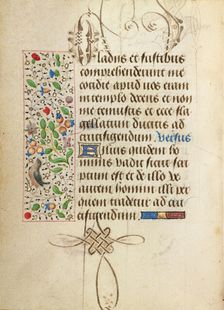 Gladiis et fustibus
comprehendere me
cotidie apud vos eram
in templo docens et non
me tenuistis et ecce fla
gellatum ducitis ad
crucifigendum Versus
Filius quidem homi
nis vadit sicut scrip
tum est de illo ve
autem homini illi per
quem tradetur ad cru
cifigendum